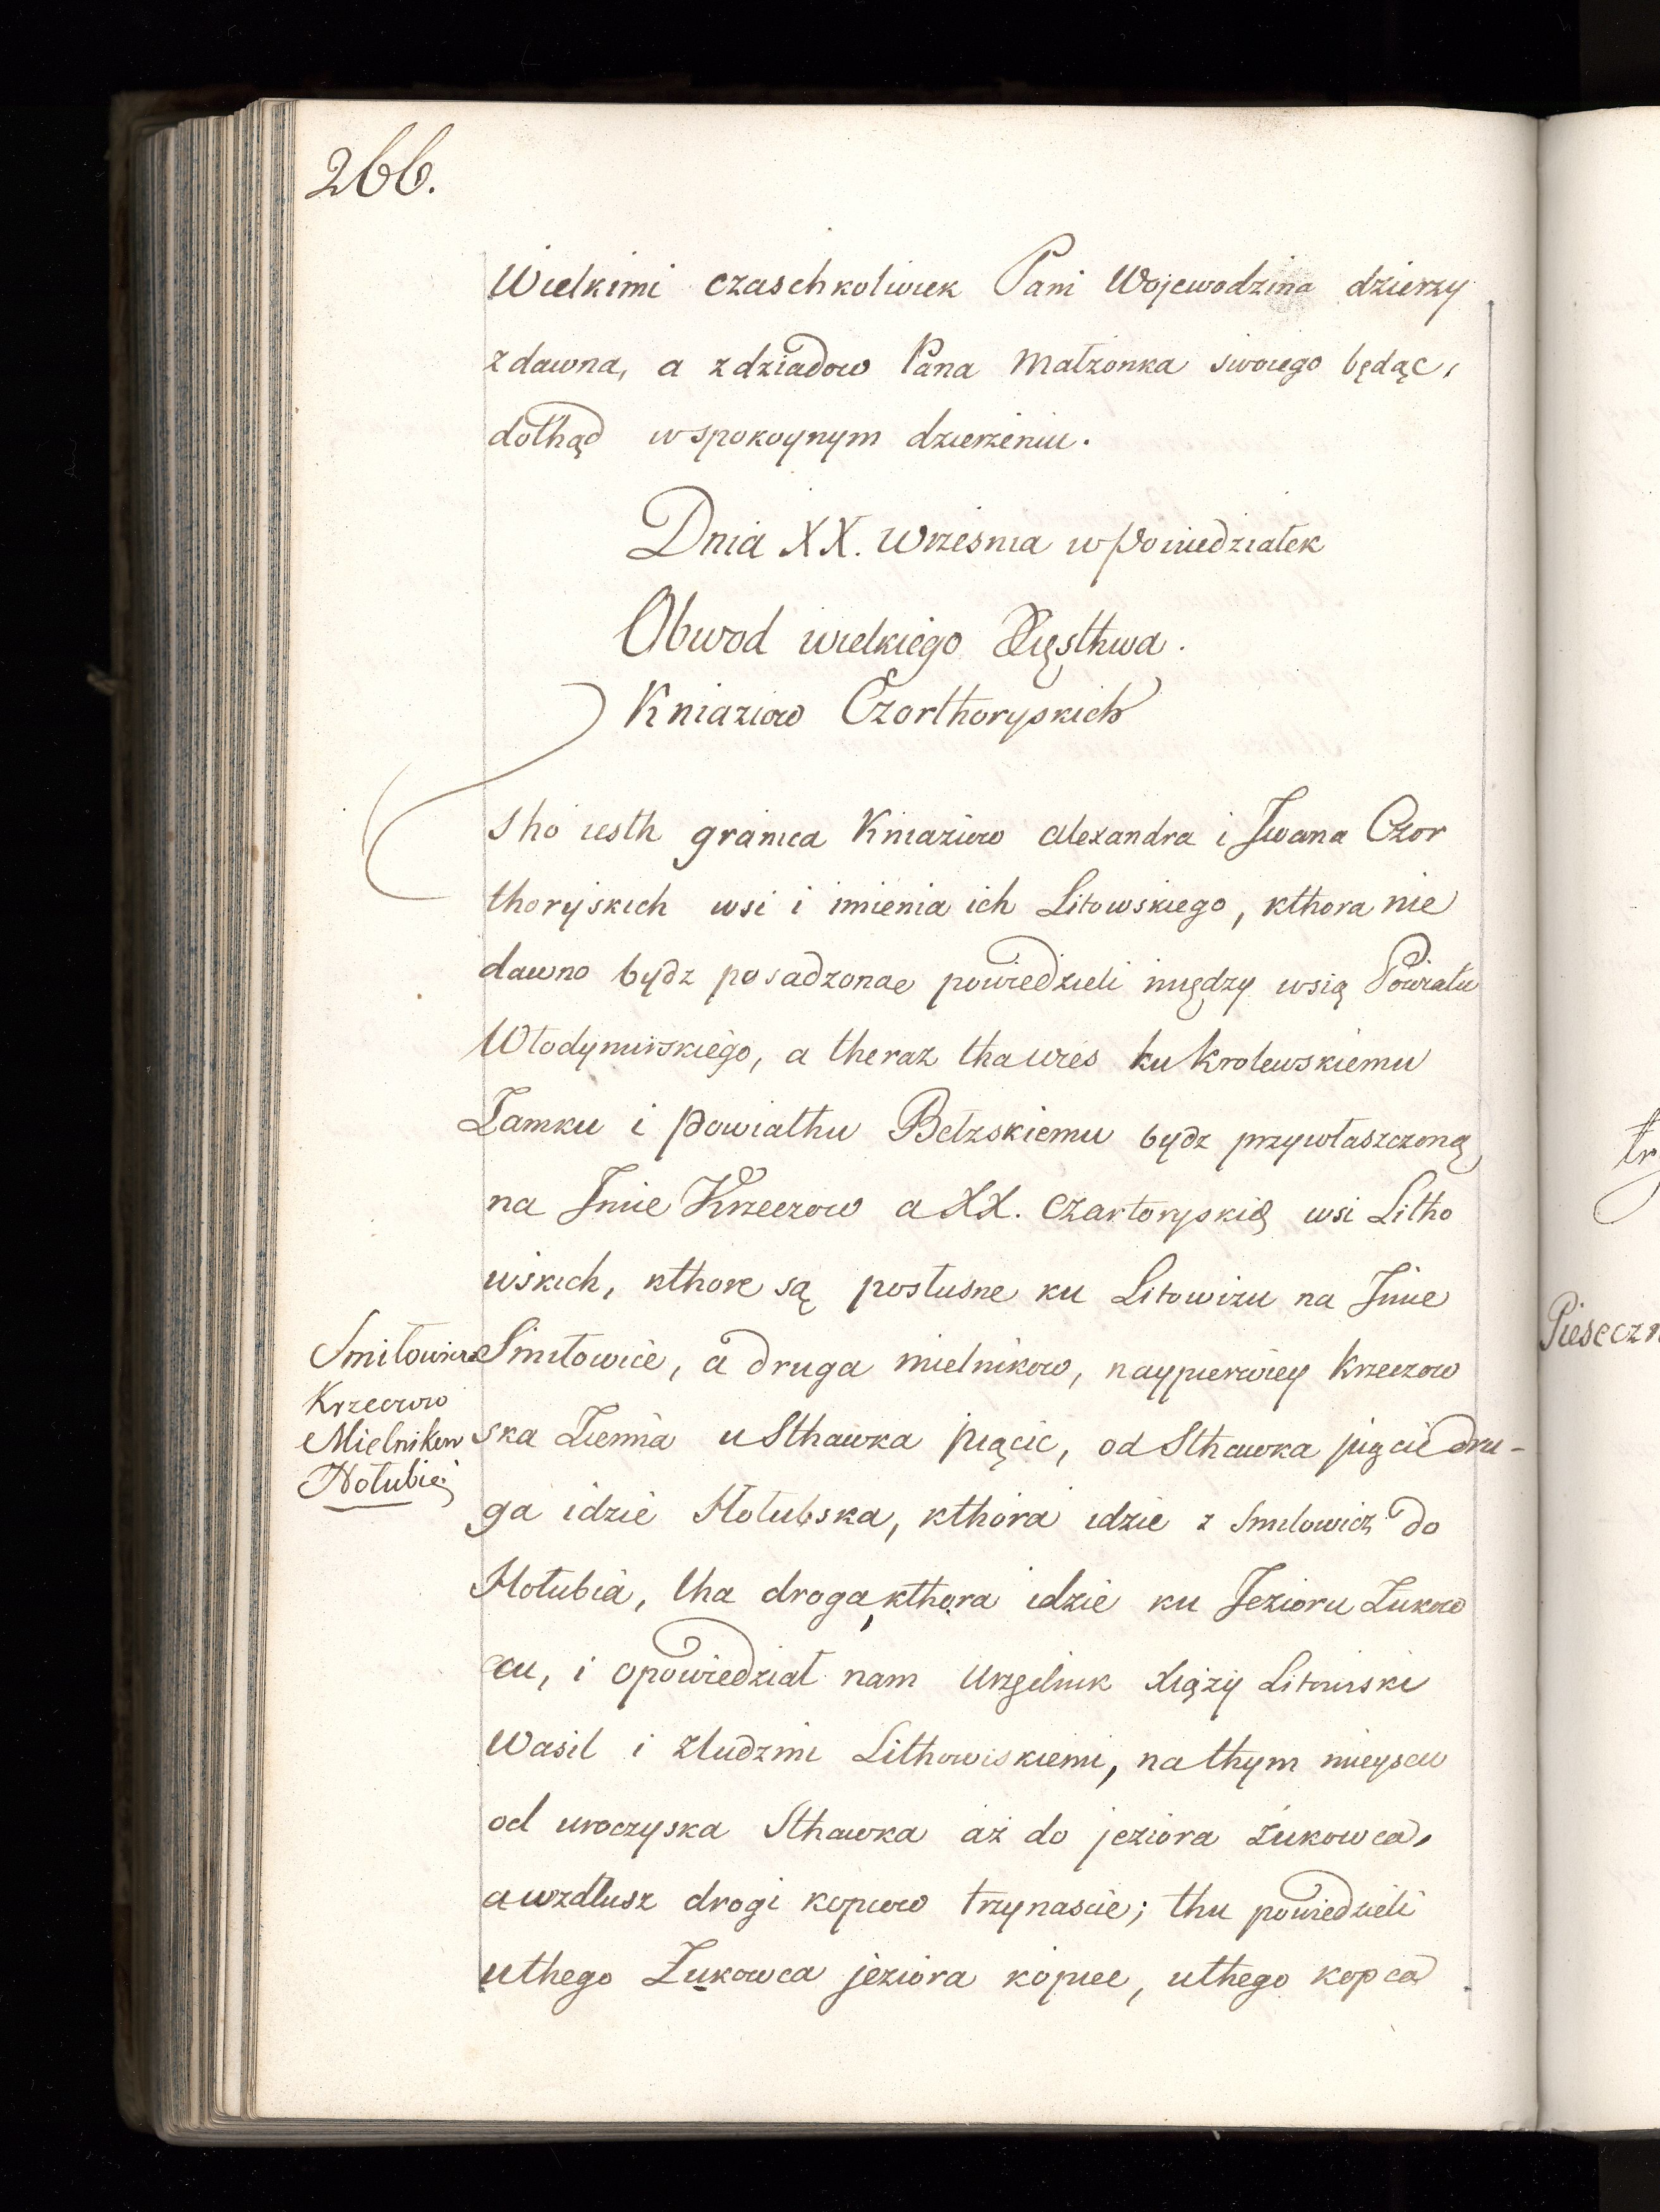 266.
Wielkimi czaschkolwiek Pani Wojewodzina dzierzy
zdawna, a zdziadow Pana Małżonka swoiego będąc,
dothąd wspokoynym dzierżeniu.
Dnia XX. Wrzesnia w Poniedziałek
Obwod wielkiego Xięsthwa.
Kniaziow Czorthoryskich
Sho iesth granica Kniaziow Alexandra i Iwana Czor
thoryskich wsi i imienia ich Litowskiego, kthora nie
dawno bydz posadzonae powiedzieli między wsią Powiatu
Włodymirskiego, a theraz tha wies ku Krolewskiemu
Zamku i Powiathu Bełzskiemu bydz przywłaszczoną
na Imie Krzeczow a XX. Czartoryskię wsi Litho
wskich, kthore są posłusne ku Litowizu na Imie
Smiłowice, a druga mielnikow, naypierwiey Krzeczow
ska Ziemia u Sthawka pięcic, od Sthawka pięcic dru-
ga idzie Hołubska, kthora idzie z Smilowicz do
Hołubia, tha droga, kthora idzie ku Jezioru Zukow
cu, i opowiedział nam Urzędnik Xiąży Litowiski
Wasil i zludzmi Lithowiskiemi, na thym mieyscu
od uroczyska Sthawka aż do jeziora Zukowca,
a wzdłusz drogi kopcow trzynascie; thu powiedzieli
uthego Zukowca jeziora kopiec, uthego kopca
Smiłowice
Krzeczow
Mielnikow
Hołubie
Piesecz